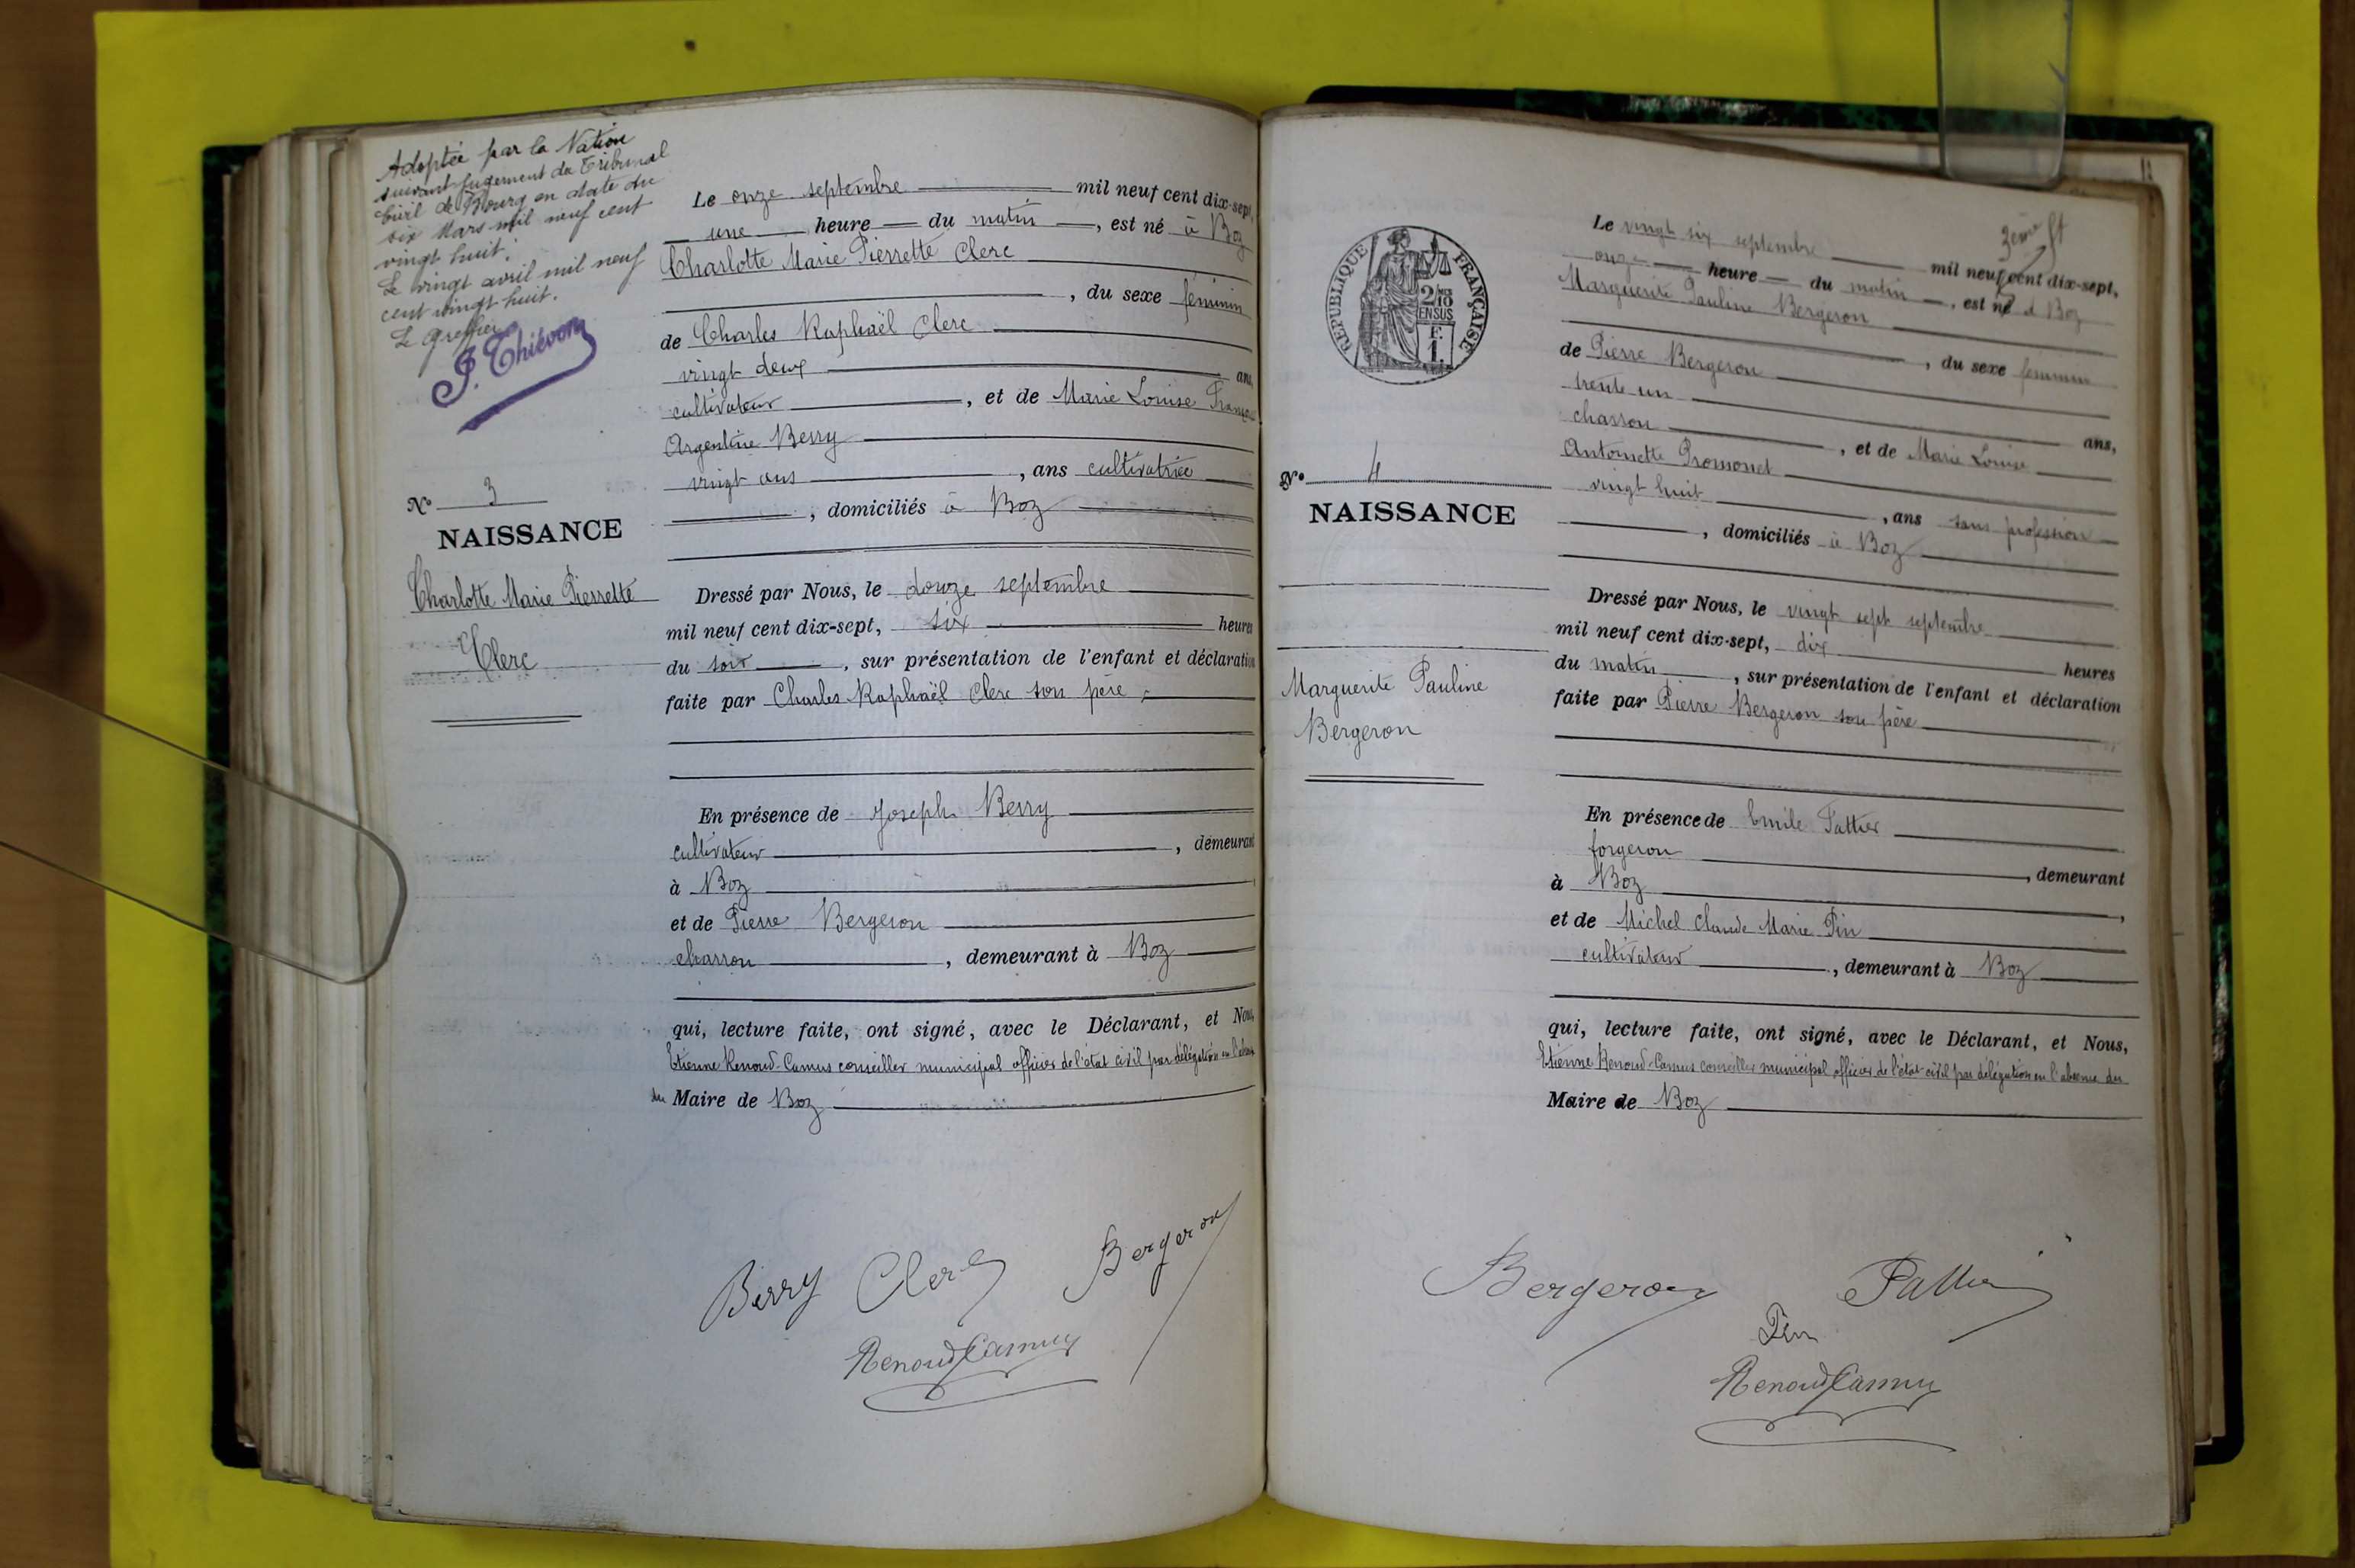 Adoptée par la Nation
suivant jugement du Tribunal
Civil de Bourg en date du
six Mars mil neuf cent
vingt huit.
Le vingt avril mil neuf
cent vingt huit.
Le Greffier
J. Thiévon
N° 3
NAISSANCE
Charlotte Marie Pierrette
Clerc
Le onze septembre mil neuf cent dix-sept,
une heure du matin, est né à Boz
Charlotte Marie Pierrette Clerc
, du sexe féminin
de Charles Raphaël Clerc
vingt deux ans,
cultivateur, et de Marie Louise
Argentine Berry
vingt ans, ans cultivatrice
, domiciliés à Boz
Dressé par Nous, le douze septembre
mil neuf cent dix-sept, six heures
du soir, sur présentation de l'enfant et déclaration
faite par Charles Raphaël Clerc son père
En présence de Joseph Berry
cultivateur, demeurant
à Boz
et de Pierre Bergeron
charron, demeurant à Boz
qui, lecture faite, ont signé, avec le Déclarant, et Nous,
Etienne Renoud-Camus conseiller municipal officier de l'état civil par délégation en l'absence
du Maire de Boz
Berry Clerc Bergeron
Renoud Camus
RÉPUBLIQUE FRANÇAISE
2/10
EN SUS
F.
1.
N° 4
NAISSANCE
Marguerite Pauline
Bergeron
Le vingt six septembre mil neuf cent dix-sept,
onze heure du matin, est né à Boz
Marguerite Pauline Bergeron
, du sexe féminin
de Pierre Bergeron
trente un ans,
charron, et de Marie Louise
Antoinette Promonet
vingt huit, ans sans profession
, domiciliés à Boz
Dressé par Nous, le vingt sept septembre
mil neuf cent dix-sept, dix heures
du matin, sur présentation de l'enfant et déclaration
faite par Pierre Bergeron son père
En présence de Emile
forgeron, demeurant
à Boz,
et de Michel Claude Marie Pin
cultivateur, demeurant à Boz
qui, lecture faite, ont signé, avec le Déclarant, et Nous,
Etienne Renoud-Camus conseiller municipal officier de l'état civil par délégation en l'absence du
Maire de Boz
Bergeron
Pin
Renoud Camus